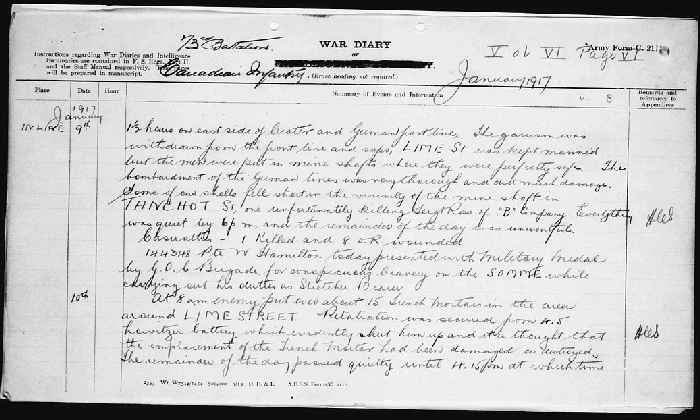 73rd Battalion
WAR DIARY
V of VI Page VI
Army Form C. 2118
Instructions regarding War Diaries and Intelligence
Summaries are contained in F. S. Regs.,
and the Staff Manual respectively.
will be prepared in manuscript.
Canadian Infantry
(Erase heading not required)
January 1917
Place Date Hour Summary of Events and Information Remarks and references to Appendices
8
1917
January
IN LINE 9th
1½ hours on east side of Crater and German front line. The garrison was
withdrawn from the front line and saps, LIME St was kept manned
but the men were put in mine shafts where they were perfectly safe. The
bombardment of the German lines was very thorough and did much damage.
Some of our shells fell short in the vicinity of the mine shaft in
St, one unfortunately killing Sergt Ross of "B" Company. Everything
was quiet by 6 pm and the remainder of the day was uneventful
Casualties – 1 Killed and 8 O.R. wounded
144348 Pte W Hamilton today presented with Military Medal
by G.O.C Brigade for conspicuous bravery on the SOMME while
carrying out his duties as Stretcher Bearer
10th At 8 am enemy put over about 15 Trench Mortars in the area
around LIME STREET Retaliation was secured from 4.5
howitzer battery which evidently shut him up and it is thought that
the emplacement of the Trench Mortar had been damaged or destroyed.
The remainder of the day passed quietly until 4.15 pm at which time